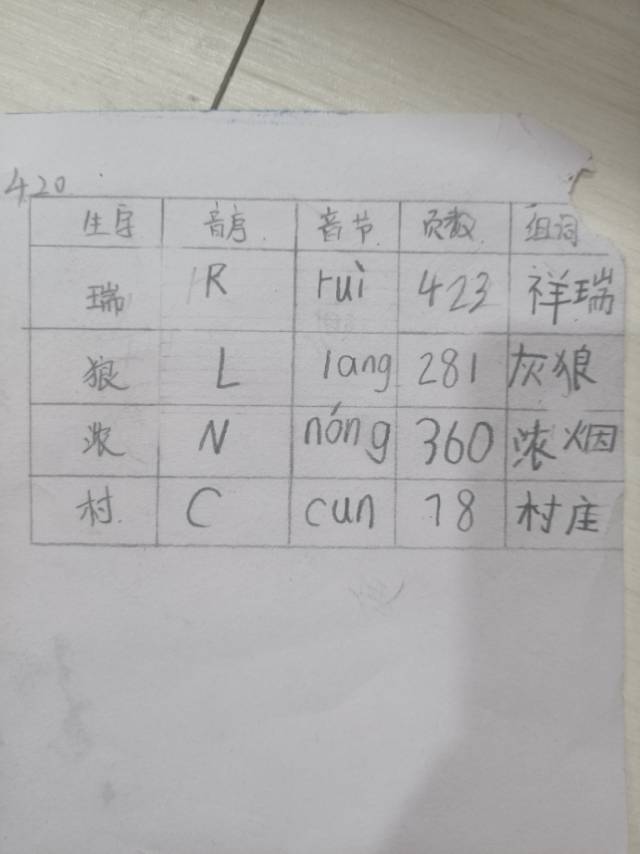 4.20
生字 音序 音节 页数 组词
瑞 R ruì 423 祥瑞
狼 L lang 281 灰狼
浓 N nóng 360 浓烟
村 C cun 78 村庄